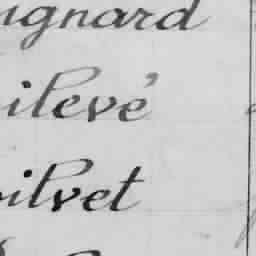 ugnard
ilevé
oilvet